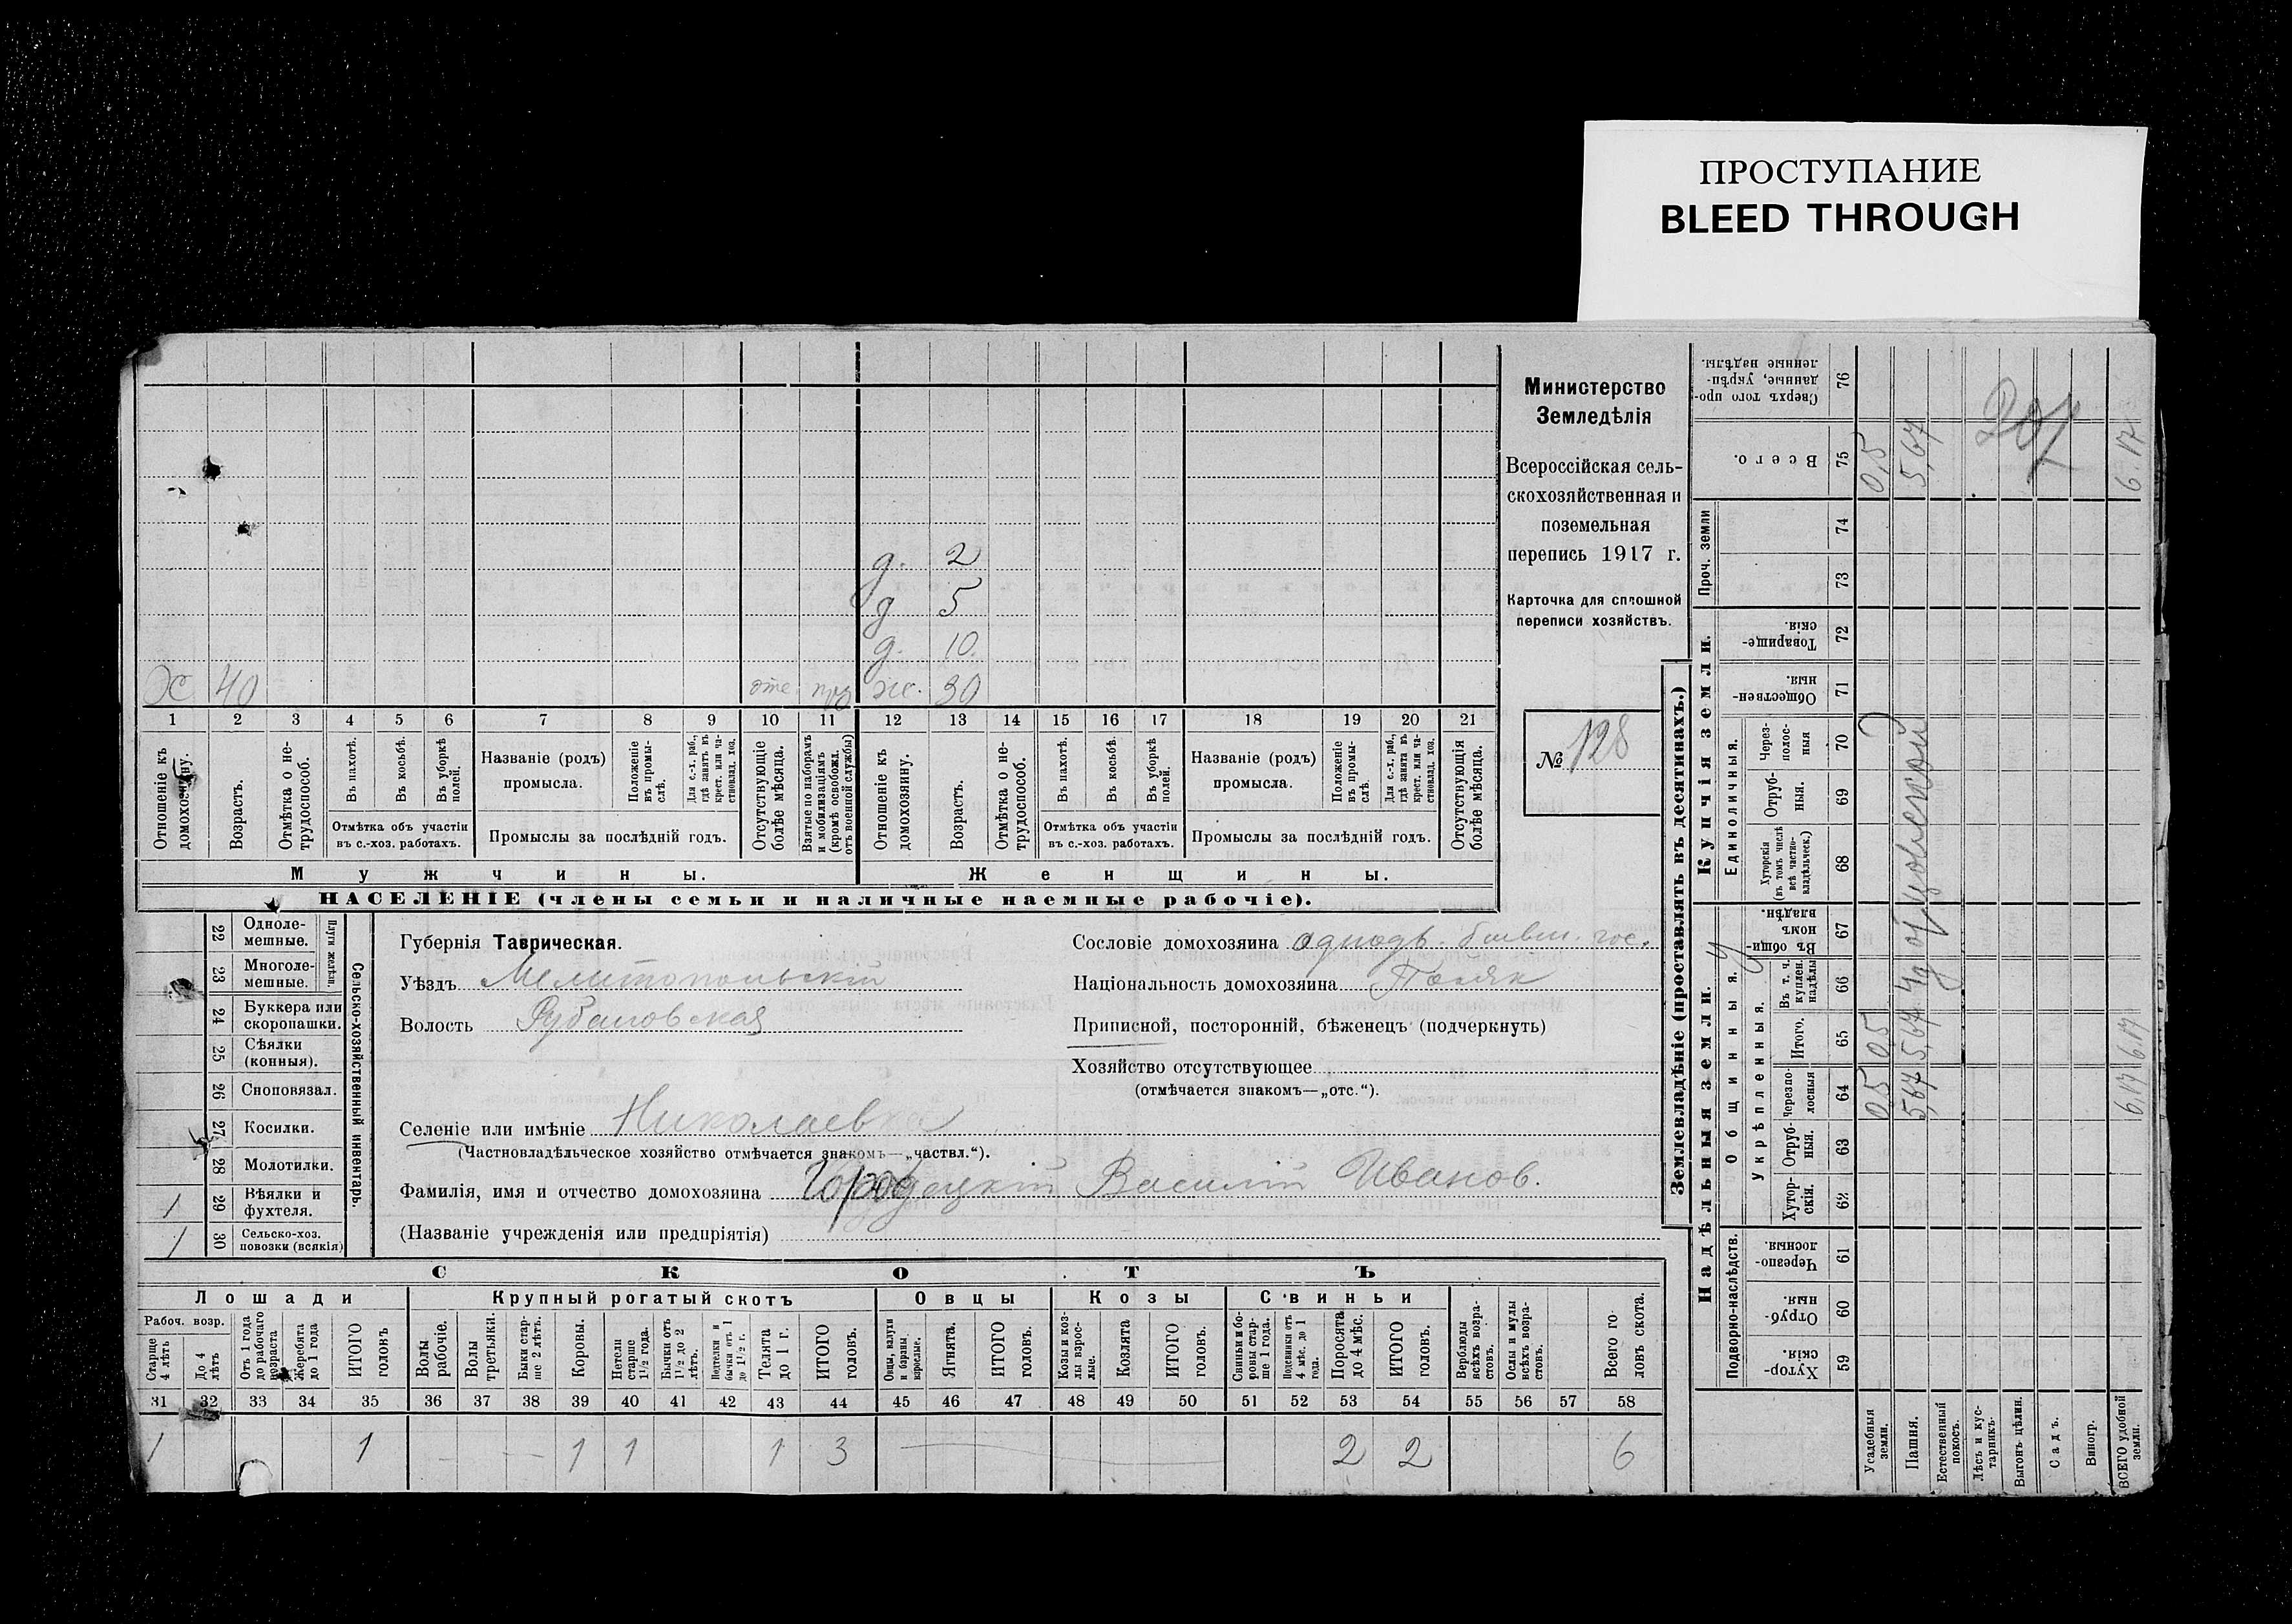 ПРОСТУПАНИЕ
BLEED THROUGH
Министерство
Земледѣлія
Всероссійская сель-
скохозяйственная и
поземельная
перепись 1917 г.
Карточка для сплошной
переписи хозяйствъ.
№ 128
д. 2
д 5
д. 10.
Х 40 отс. ж. 30
1 2 3 4 5 6 7 8 9 10 11 12 13 14 15 16 17 18 19 20 21
Отношеніе къ домохозяину.
Возрастъ.
Отмѣтка о не-трудоспособ.
Въ пахотѣ.
Въ косьбѣ.
Въ уборкѣ полей.
Отмѣтка объ участіи
въ с.-хоз. работахъ.
Названіе (родъ)
промысла.
Положеніе въ промы-слѣ.
Для с.-х. раб., гдѣ занятъ въ крест. или ча-стновлад. хоз.
Промыслы за послѣдній годъ.
Отсутствующіе болѣе мѣсяца.
Взятые по наборамъ и мобилизаціямъ (кромѣ освобожд. отъ военной службы)
Отношеніе къ домохозяину.
Возрастъ.
Отмѣтка о не-трудоспособ.
Въ пахотѣ.
Въ косьбѣ.
Въ уборкѣ полей.
Отмѣтка объ участіи
въ с.-хоз. работахъ.
Названіе (родъ)
промысла.
Положеніе въ промы-слѣ.
Для с.-х. раб., гдѣ занята въ крест. или ча-стновлад. хоз.
Промыслы за послѣдній годъ.
Отсутствующія болѣе мѣсяца.
Мужчины. Женщины.
НАСЕЛЕНІЕ (члены семьи и наличные наемные рабочіе).
Сельско-хозяйственный инвентарь.
Плуги желѣзн.
22 Одноле-мешные.
23 Многоле-мешные.
24 Буккера или скоропашки.
25 Сѣялки (конныя).
26 Сноповязал.
27 Косилки.
28 Молотилки.
1 29 Вѣялки и фухтеля.
1 30 Сельско-хоз. повозки (всякія)
Губернія Таврическая.
Уѣздъ Мелитопольскій
Волость Рубановская
Сословіе домохозяина однодв. бывш. гос.
Національность домохозяина Поляк
Приписной, посторонній, бѣженецъ (подчеркнуть)
Хозяйство отсутствующее
(отмѣчается знакомъ—„отс.“).
Селеніе или имѣніе Николаевка
(Частновладѣльческое хозяйство отмѣчается знакомъ—„частвл.“).
Фамилія, имя и отчество домохозяина Городецкій Василій Иванов.
(Названіе учрежденія или предпріятія)
СКОТЪ
Лошади Крупный рогатый скотъ Овцы Козы Свиньи
Рабоч. возр.
Старше 4 лѣтъ
До 4 лѣтъ
Отъ 1 года до рабочаго возраста
Жеребята до 1 года
ИТОГО головъ
Волы рабочіе.
Волы третьяки.
Быки стар-ше 2 лѣтъ.
Коровы.
Нетели старше 1½ года.
Бычки отъ 1½ до 2 лѣтъ.
Подтелки и бычки отъ 1 до 1½ г.
Телята до 1 г.
ИТОГО головъ.
Овцы, валухи и бараны взрослые.
Ягнята.
ИТОГО головъ.
Козы и коз-лы взрос-лые.
Козлята
ИТОГО головъ.
Свиньи и бо-ровы стар-ше 1 года.
Подсвинки отъ 4 мѣс. до 1 года.
Поросята до 4 мѣс.
ИТОГО головъ.
Верблюды всѣхъ возра-стовъ.
Ослы и мулы всѣхъ возра-стовъ.
Всего го-ловъ скота.
31 32 33 34 35 36 37 38 39 40 41 42 43 44 45 46 47 48 49 50 51 52 53 54 55 56 57 58
1 1 1 1 1 3 2 2 6
Землевладѣніе (проставлять въ десятинахъ.)
Надѣльныя земли.
Купчія земли.
Проч. земли
Подворно-наслѣдств.
Общинныя.
Укрѣпленныя.
Единоличныя.
Хутор-скія 59
Отруб-ныя. 60
Черезпо-лосныя. 61
Хутор-скія. 62
Отруб-ныя. 63
Черезпо-лосныя 64
Итого. 65
Въ т. ч. куплен. надѣлы 66
Въ общин-номъ владѣн. 67
Хуторскія (въ томъ числѣ всѣ частно-владѣльческ.) 68
Отруб-ныя. 69
Через-полос-ныя 70
Обществен-ныя. 71
Товарище-скія. 72
73
74
Всего. 75
Сверхъ того про-данные, укрѣп-ленные надѣлы. 76
Усадебныя земли. 0,5 0,5 0,5
Пашня. 5,67 5,67 5,67
Естественный покосъ.
Лѣсъ и кус-тарникъ.
Выгонъ цѣлин.
Садъ.
Виногр.
ВСЕГО удобной земли. 6,17 6,17 6.17
207